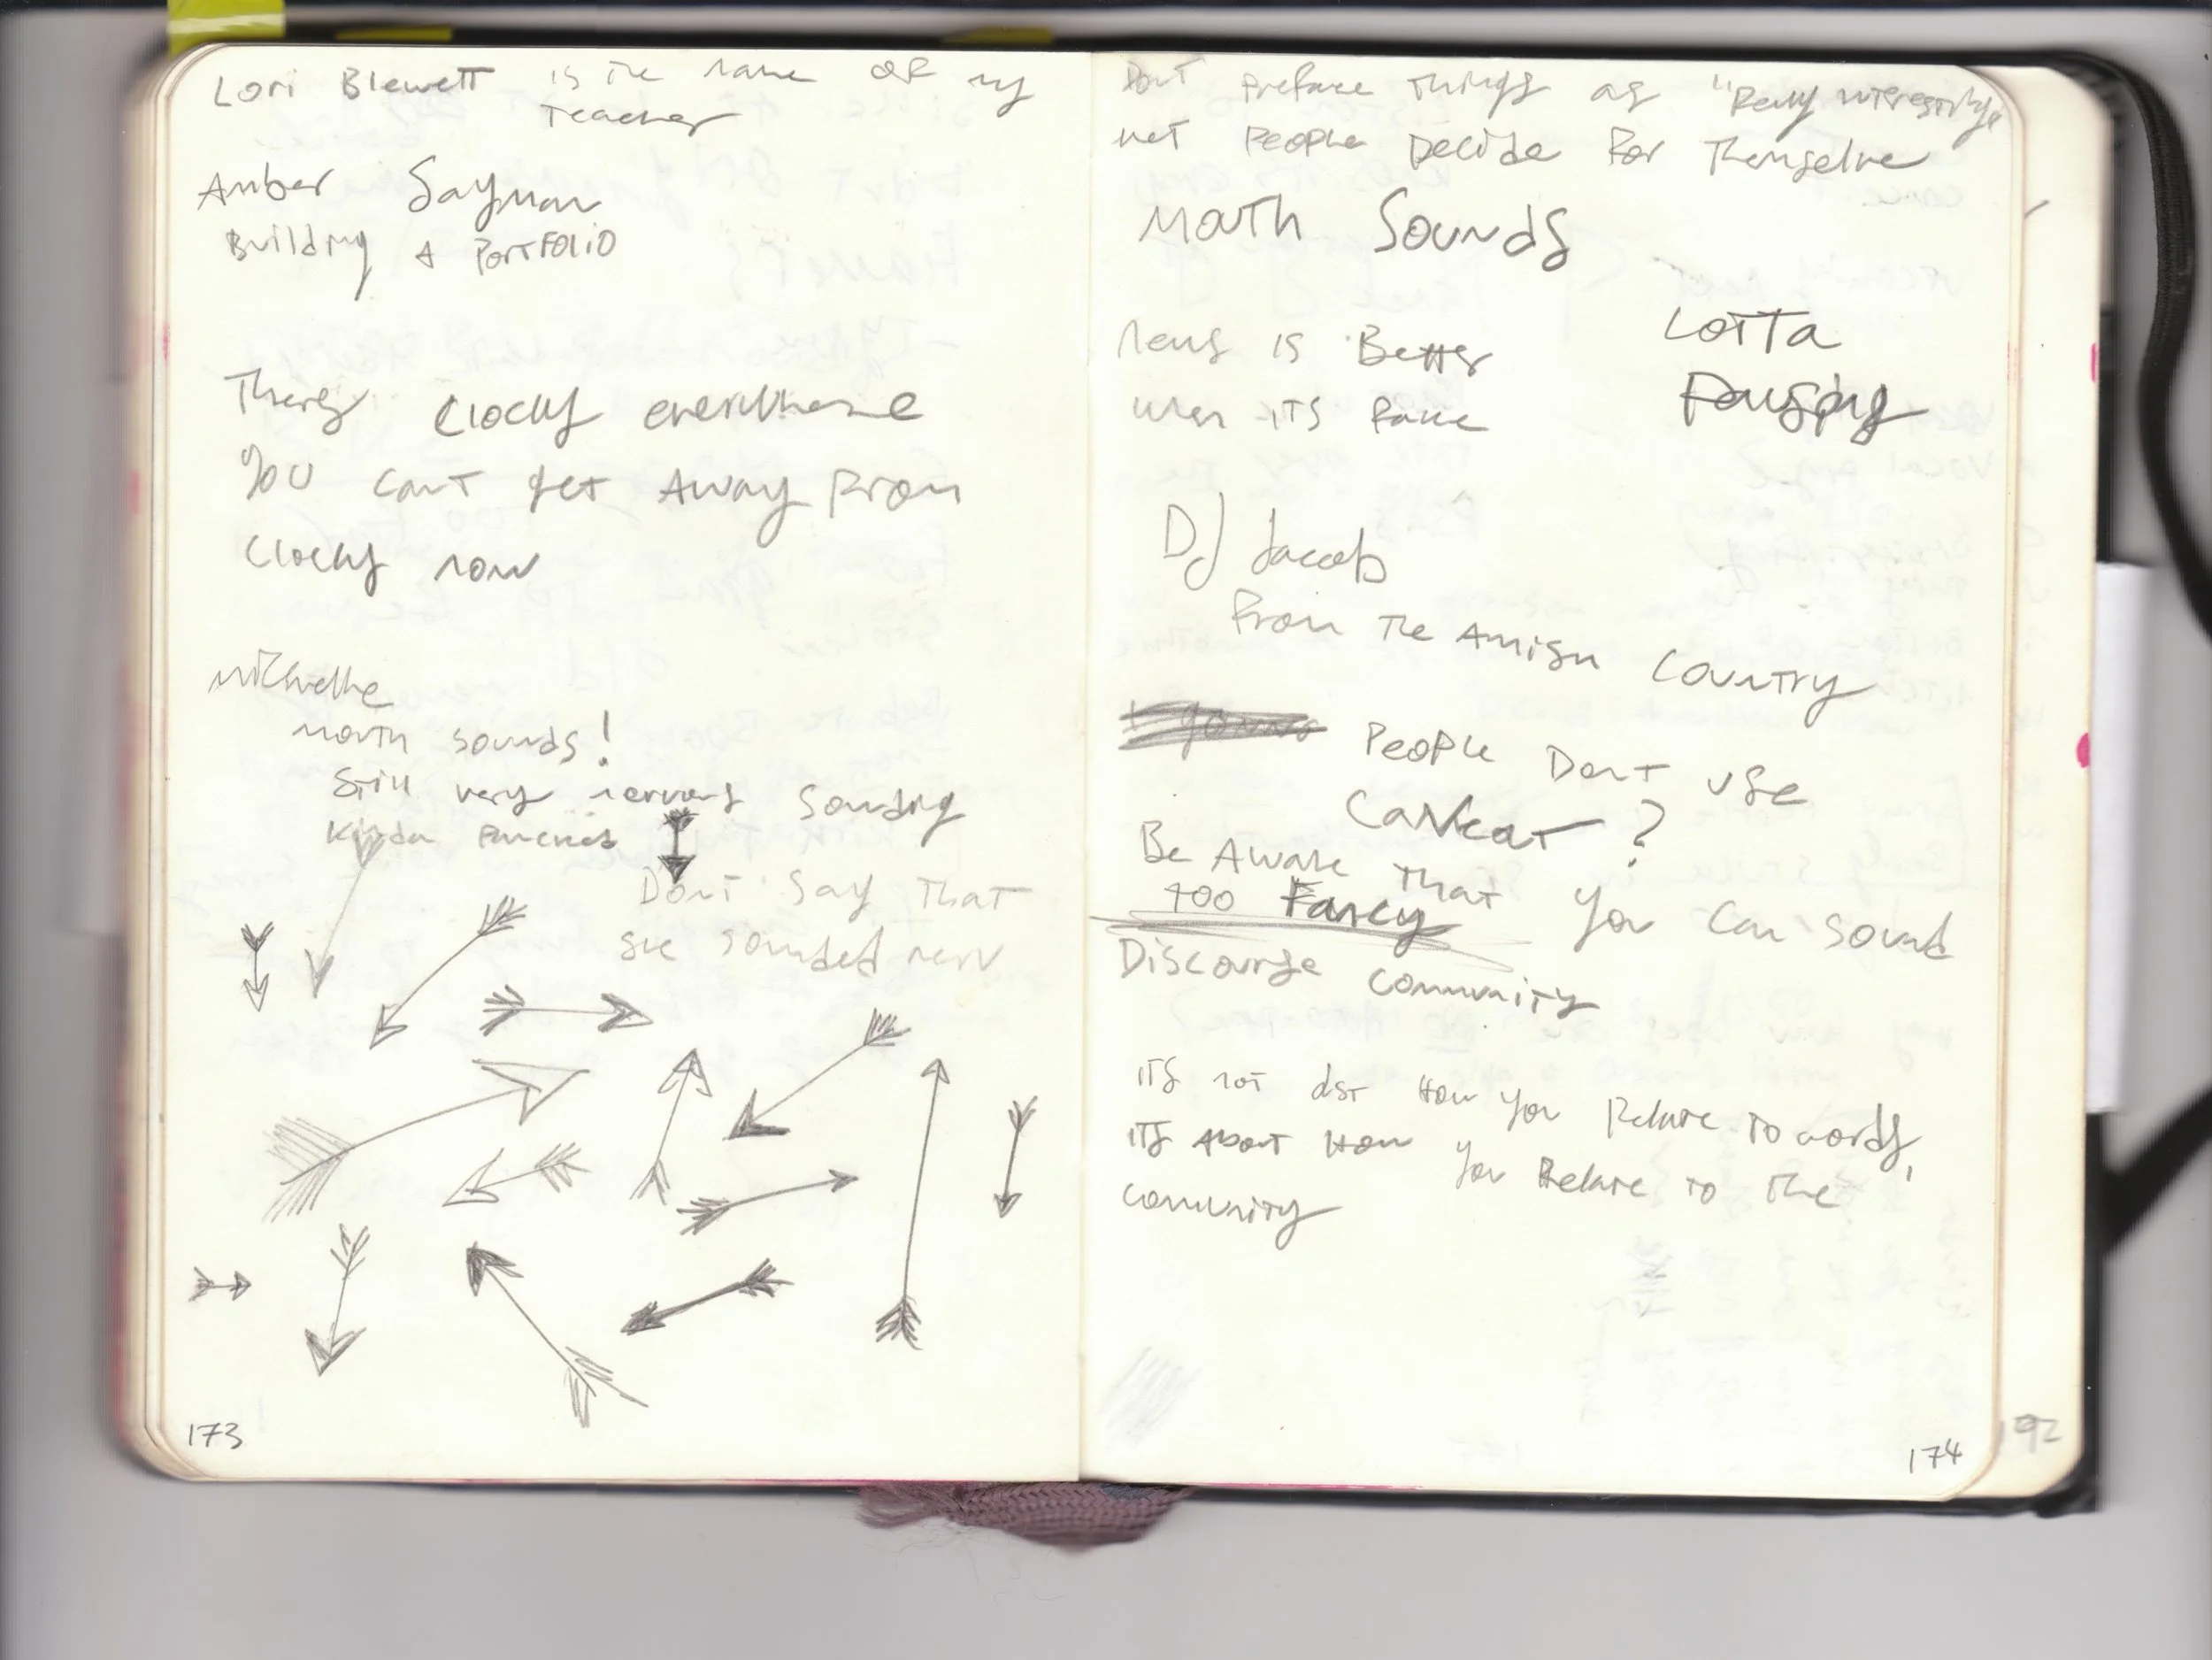 Lori Blewett is the name of my
teacher
Amber Sayman
Building A Portfolio
Theres clocks everywhere
you cant get away from
clocks now
Michelle
mouth sounds!
Still very nervous sounding
Kinda
Dont say that
she sounded nerv
173
Dont preface things as "Really interesting"
Let people decide for themselve
Mouth Sounds
Lotta
Pausing
News is Better
when its fake
DJ Jacob
From the Amish Country
People Dont use
Caveat?
Be Aware that you can sound
too Fancy
Discourse community
its not just how you Relate to words,
its about how you Relate to the
community
174
192